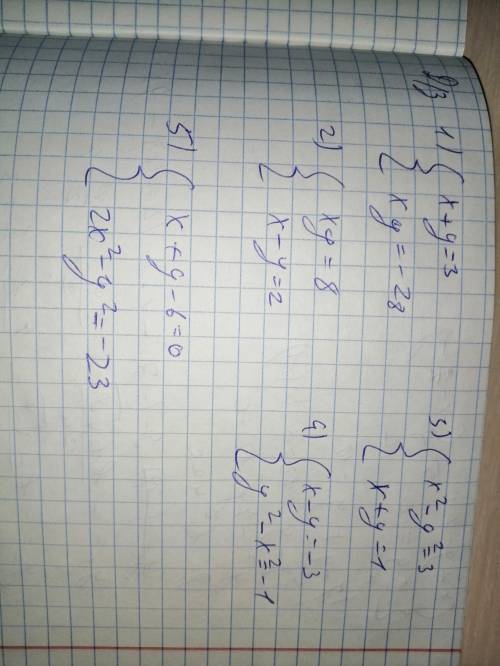 Д/з 1) { x + y = 3
xy = -28
2) { xy = 8
x - y = 2
3) { x² - y² = 3
x + y = 1
4) { x - y = -3
y² - x² = -1
5) { x + y - 6 = 0
2x² - y² = -23